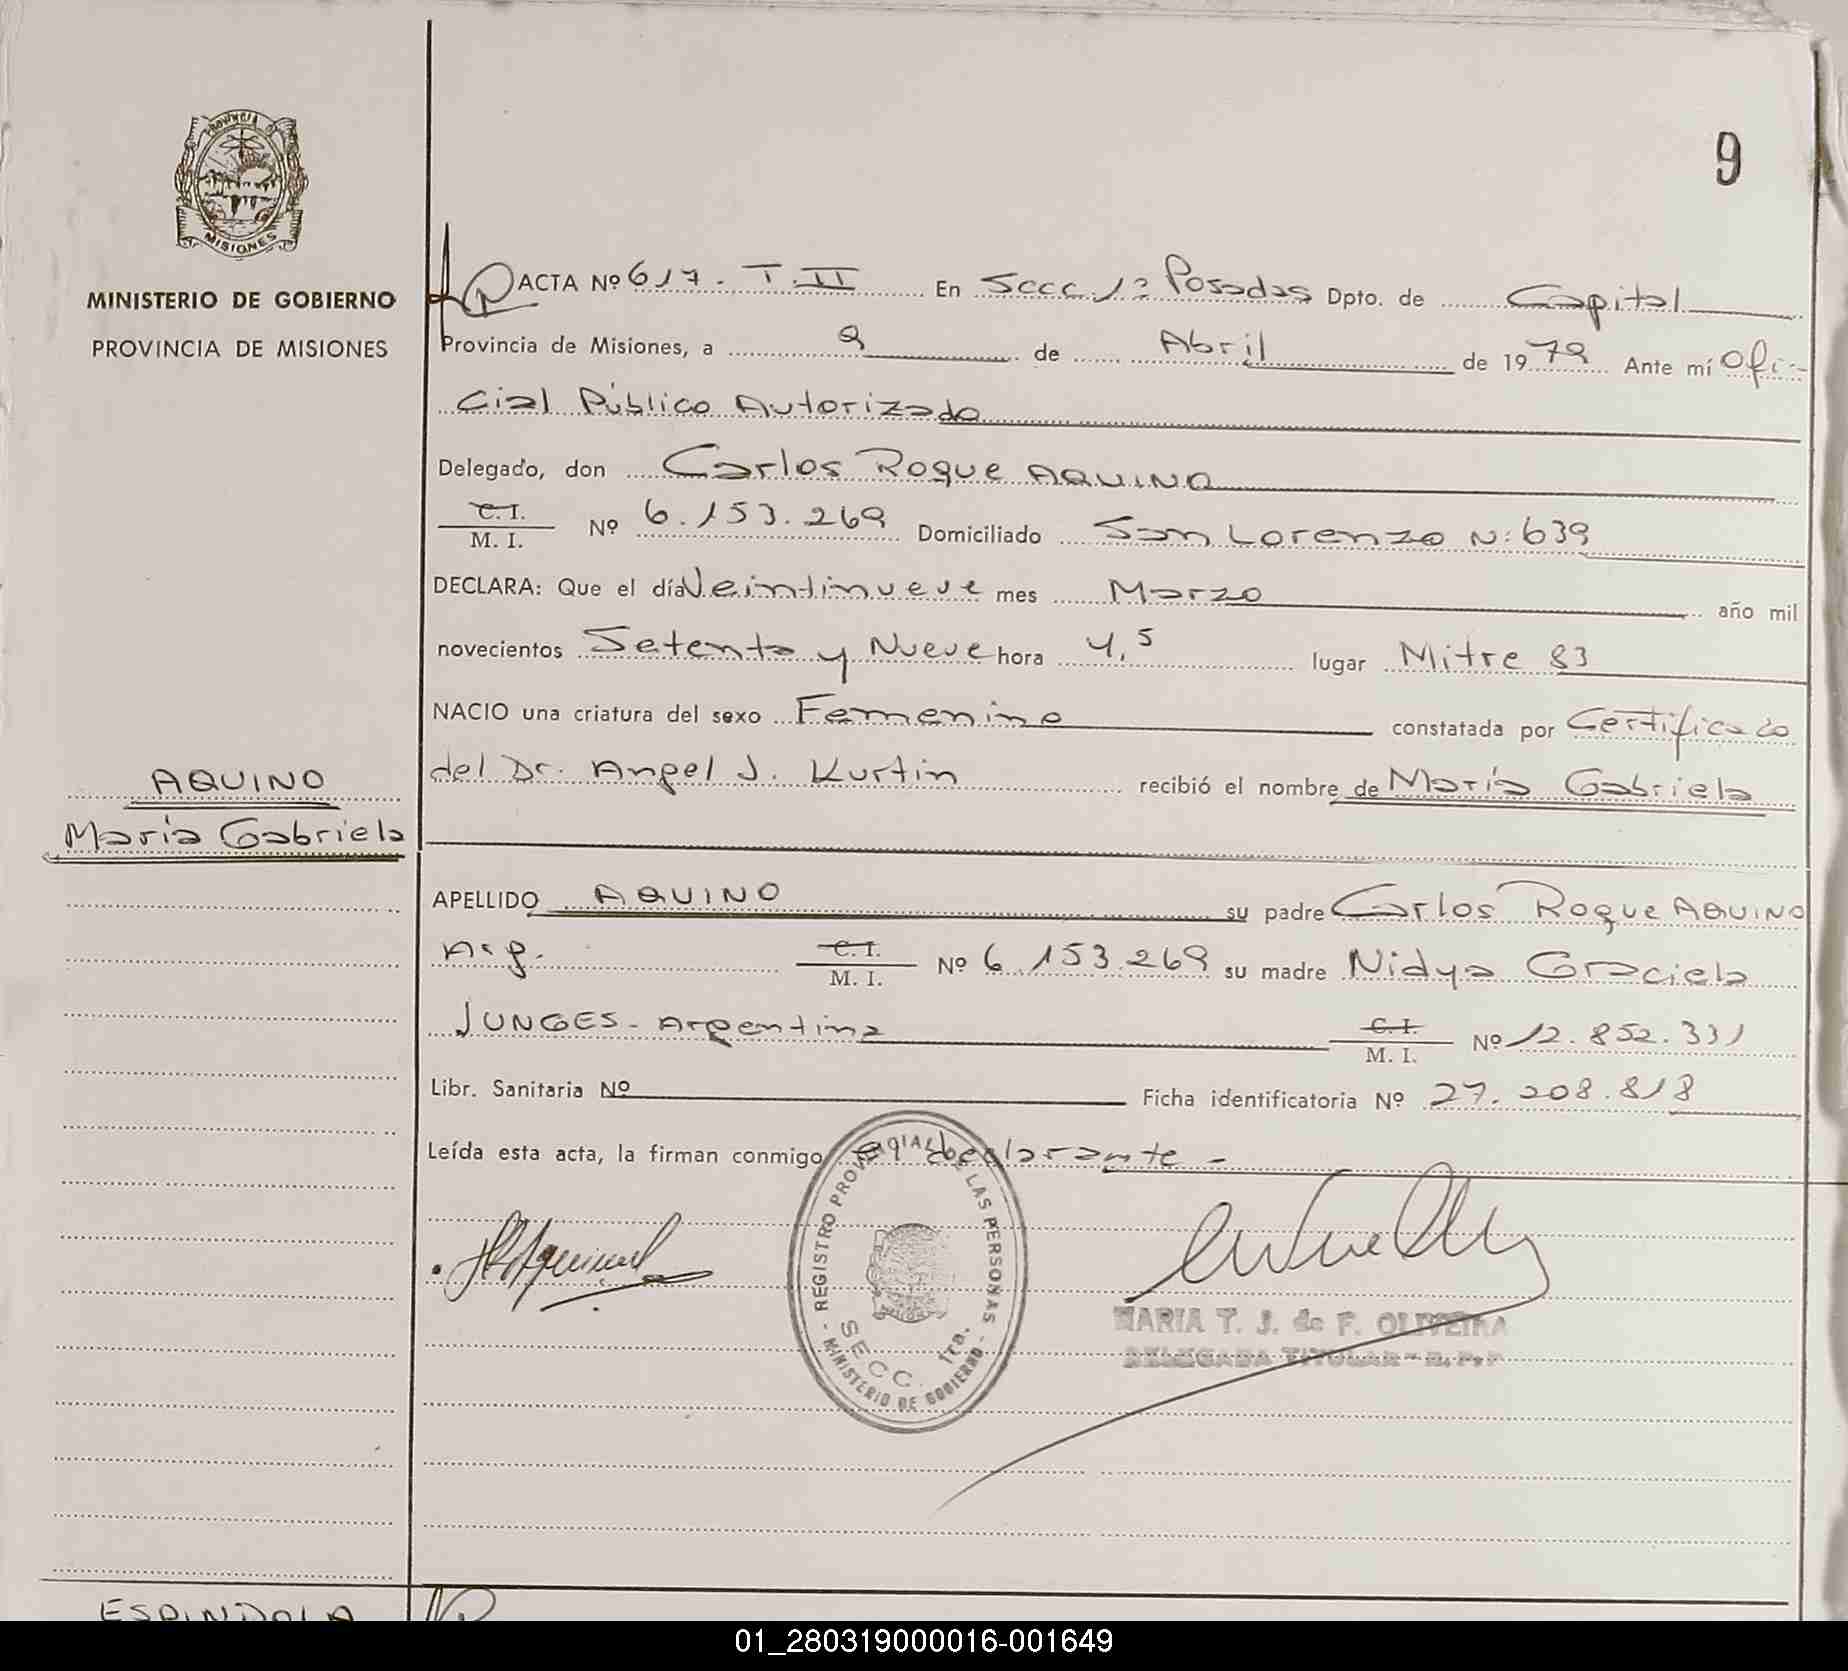 PROVINCIA DE
MISIONES
MINISTERIO DE GOBIERNO
PROVINCIA DE MISIONES
9
ACTA Nº 617. T. II En Secc. 1ª Posadas Dpto. de Capital
Provincia de Misiones, a 9 de Abril de 1979 Ante mí Ofi-
cial Público Autorizado
Delegado, don Carlos Roque AQUINO
C. I. / M. I. Nº 6.153.269 Domiciliado San Lorenzo N: 639
DECLARA: Que el día Veintinueve mes Marzo año mil
novecientos Setenta y Nueve hora 4,5 lugar Mitre 83
NACIO una criatura del sexo Femenino constatada por Certificado
del Dr. Angel J. Kurtin recibió el nombre de María Gabriela
AQUINO
María Gabriela
APELLIDO AQUINO su padre Carlos Roque AQUINO
Arg. C. I. / M. I. Nº 6.153.269 su madre Nidya Graciela
JUNGES - Argentina C. I. / M. I. Nº 12.852.331
Libr. Sanitaria Nº Ficha identificatoria Nº 27.208.818
Leída esta acta, la firman conmigo el declarante -
- REGISTRO PROVINCIAL DE LAS PERSONAS -
MINISTERIO DE GOBIERNO
SECC. 1ra.
MARIA T. J. de F. OLIVEIRA
DELEGADA TITULAR - R. P. P
ESPINDOLA
01_280319000016-001649